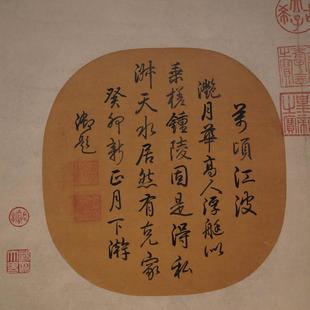 萬頃江波
灩月華高人浮艇似
乘槎鍾陵固是得私
淑天水居然有克家
癸卯新正月下澣
御題